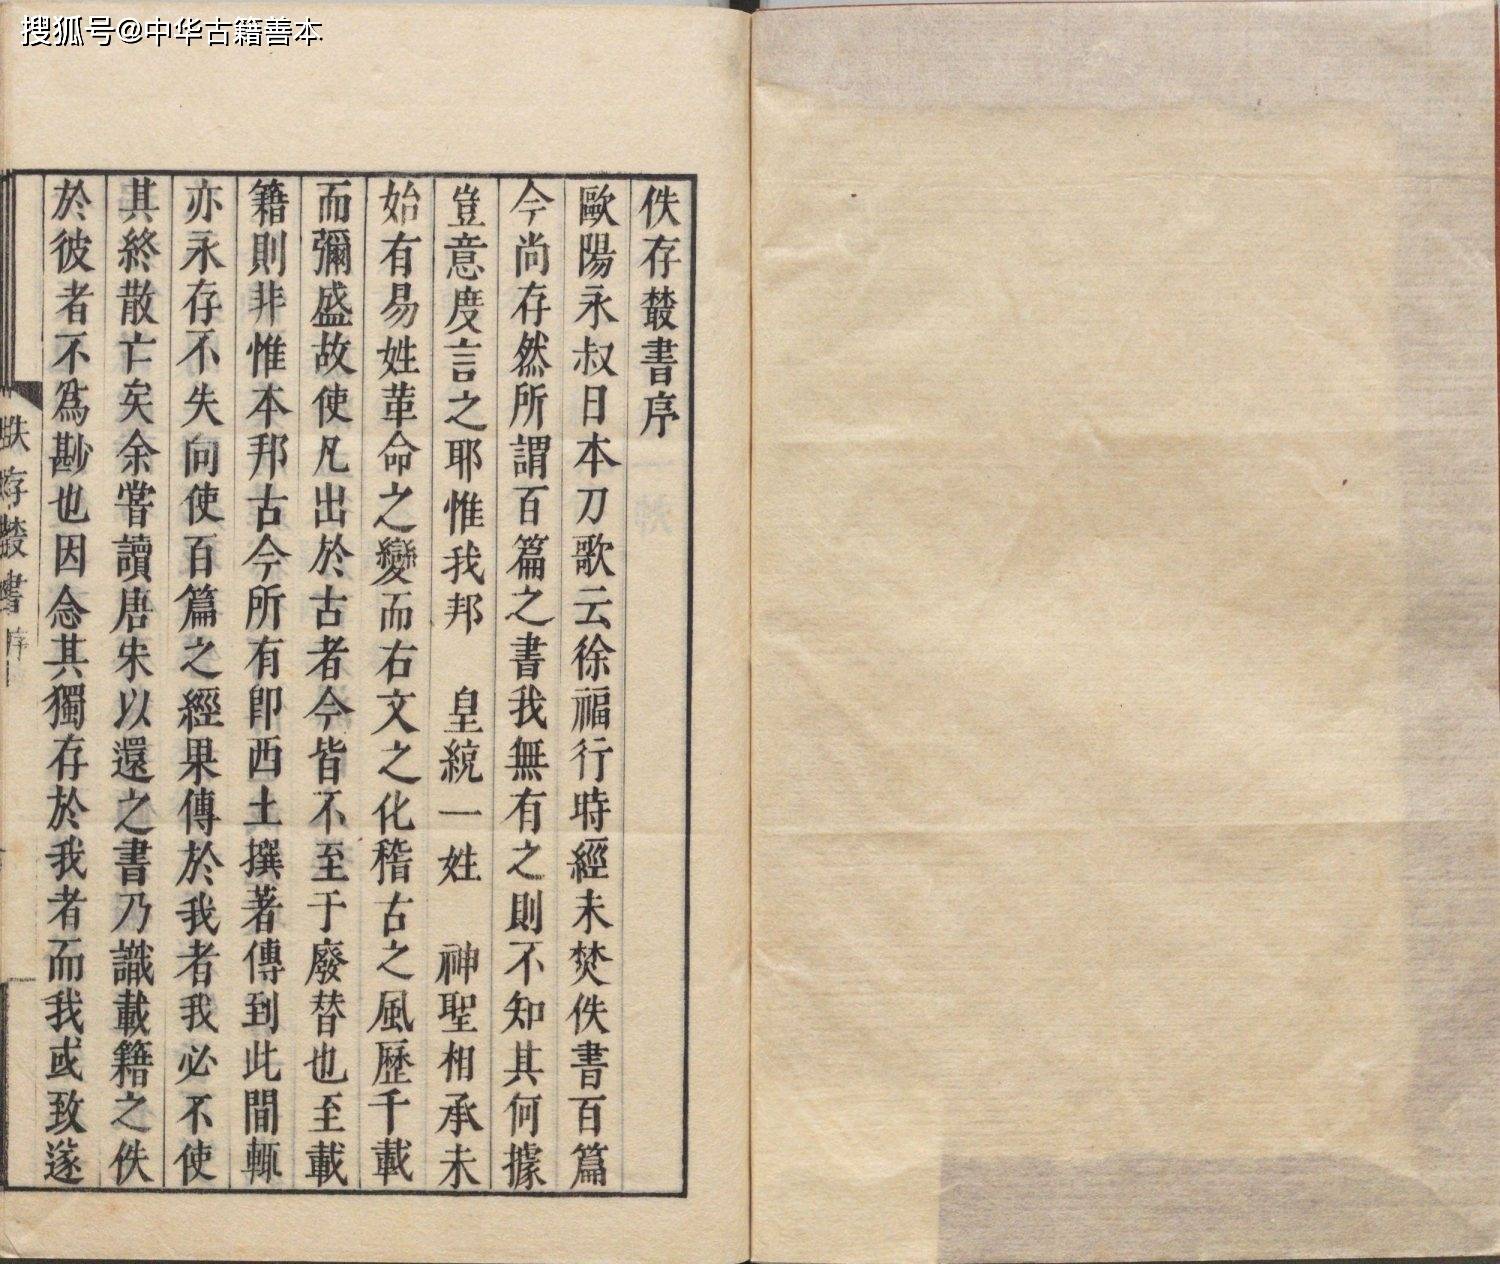 搜狐号@中华古籍善本
佚存叢書序
歐陽永叔日本刀歌云徐福行時經未焚佚書百篇
今尚存然所謂百篇之書我無有之則不知其何據
豈意度言之耶惟我邦　皇統一姓　神聖相承未
始有易姓革命之變而右文之化稽古之風歷千載
而彌盛故使凡出於古者今皆不至于廢替也至載
籍則非惟本邦古今所有卽西土撰著傳到此間輒
亦永存不失向使百篇之經果傳於我者我必不使
其終散亡矣余嘗讀唐宋以還之書乃識載籍之佚
於彼者不爲尠也因念其獨存於我者而我或致遂
佚存叢書 序